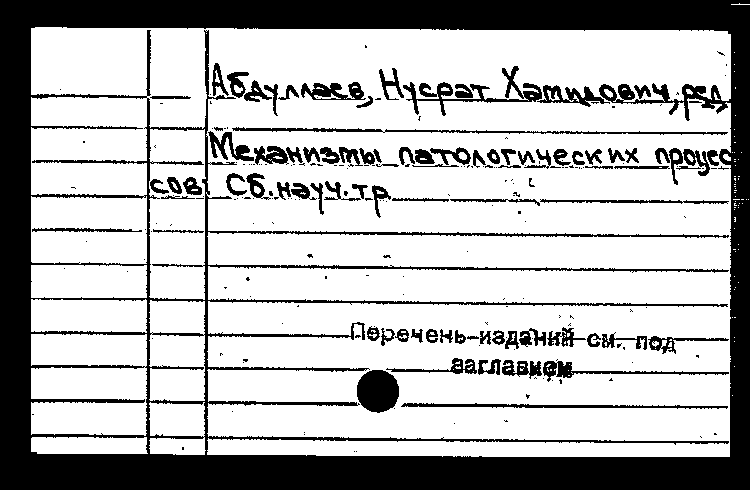 Абдуллаев, Нусрат Хамидович, ред.
Механизмы патологических процес
сов: Сб.науч.тр
Перечень изданий см. под
заглавием